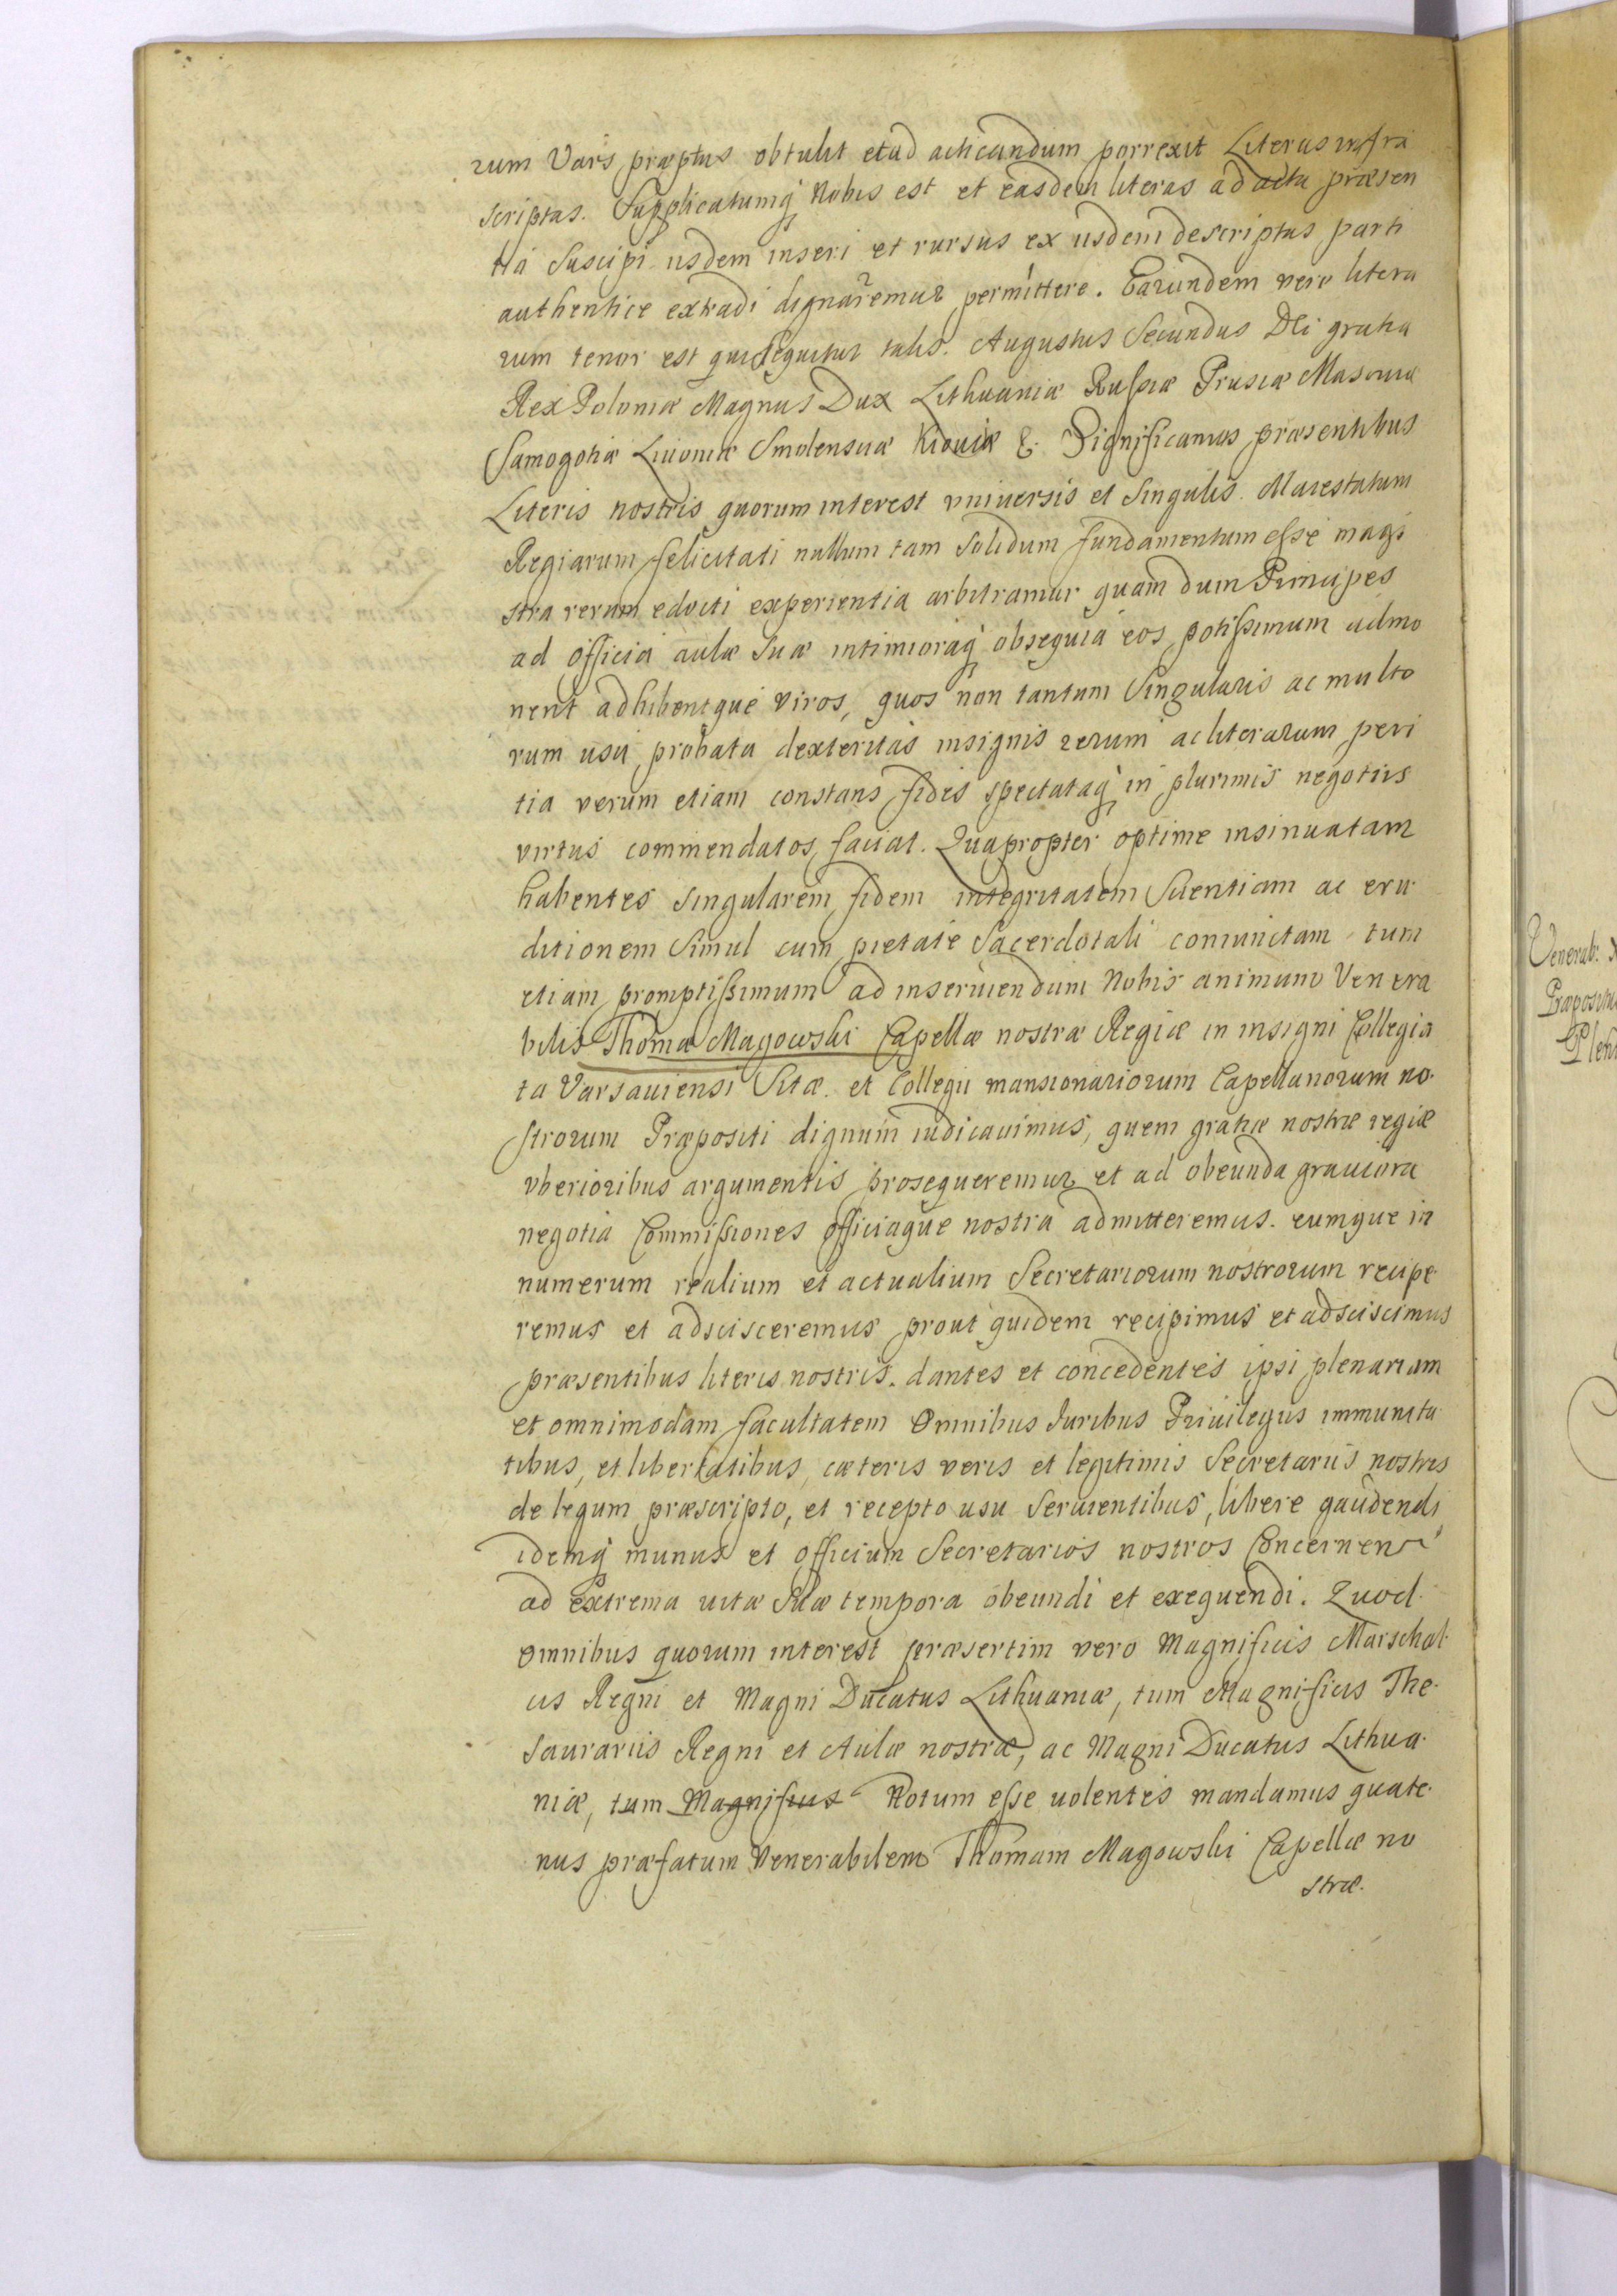 rum Vars præptus obtulit et ad acticandum porrexit Literas infra
scriptas. Supplicatumq Nobis est et easdem literas ad acta præsen
tia Suscipi iisdem inseri et rursus ex iisdem descriptas parti
authentice extradi dignaremur permittere. Earundem vero litera
rum tenor est qui sequitur talis. Augustus Secundus Dei gratia
Rex Poloniæ Magnus Dux Lithuaniæ Russiæ Prusiæ Masouiæ
Samogotiæ Liuoniæ Smolensciæ Kiouiæ &. Significamus præsentibus
Literis nostris quorum interest vniuersis et Singulis. Maiestatum
Regiarum felicitati nullum tam Solidum fundamentum esse magi
stra rerum edocti experientia arbitramur quam dum Principes
ad officia aulæ Suæ intimioraq obsequia eos potissimum admo
nent adhibentque viros, quos non tantum Singularis ac multo
rum usu probata dexteritas insignis rerum ac literarum peri
tia verum etiam constans fides spectataq in plurimis negotiis
virtus commendatos faciat. Quapropter optime insinuatam
habentes Singularem fidem integritatem Scientiam ac eru
ditionem Simul cum pietate Sacerdotali coniunctam tum
etiam promptissimum ad inseruiendum Nobis animum Venera
bilis Thomæ Magowski Capellæ nostræ Regiæ in insigni Collegia
ta Varsauiensi Sitæ. et Collegii mansionariorum Capellanorum no
strorum Præpositi dignum iudicauimus, quem gratiæ nostræ regiæ
vberioribus argumentis prosequeremur et ad obeunda grauiora
negotia Commissiones officiaque nostra admitteremus. eumque in
numerum realium et actualium Secretariorum nostrorum recipe
remus et adscisceremus prout quidem recipimus et adsciscimus
præsentibus literis nostris. dantes et concedentes ipsi plenariam
et omnimodam facultatem Omnibus Iuribus Priuilegiis immunita
tibus, et libertatibus, cæteris veris et legitimis Secretariis nostris
de legum præscripto, et recepto usu Seruientibus, libere gaudendi
idemq munus et officium Secretarios nostros Concernens
ad extrema uitæ Suæ tempora obeundi et exequendi. Quod
Omnibus quorum interest præsertim vero Magnificis Marschal
cis Regni et Magni Ducatus Lithuaniæ, tum Magnificis The
saurariis Regni et Aulæ nostræ, ac Magni Ducatus Lithua
niæ, tum Magnificus Notum esse uolentes mandamus quate
nus præfatum Venerabilem Thomam Magowski Capellæ no
stræ.
Venerab: